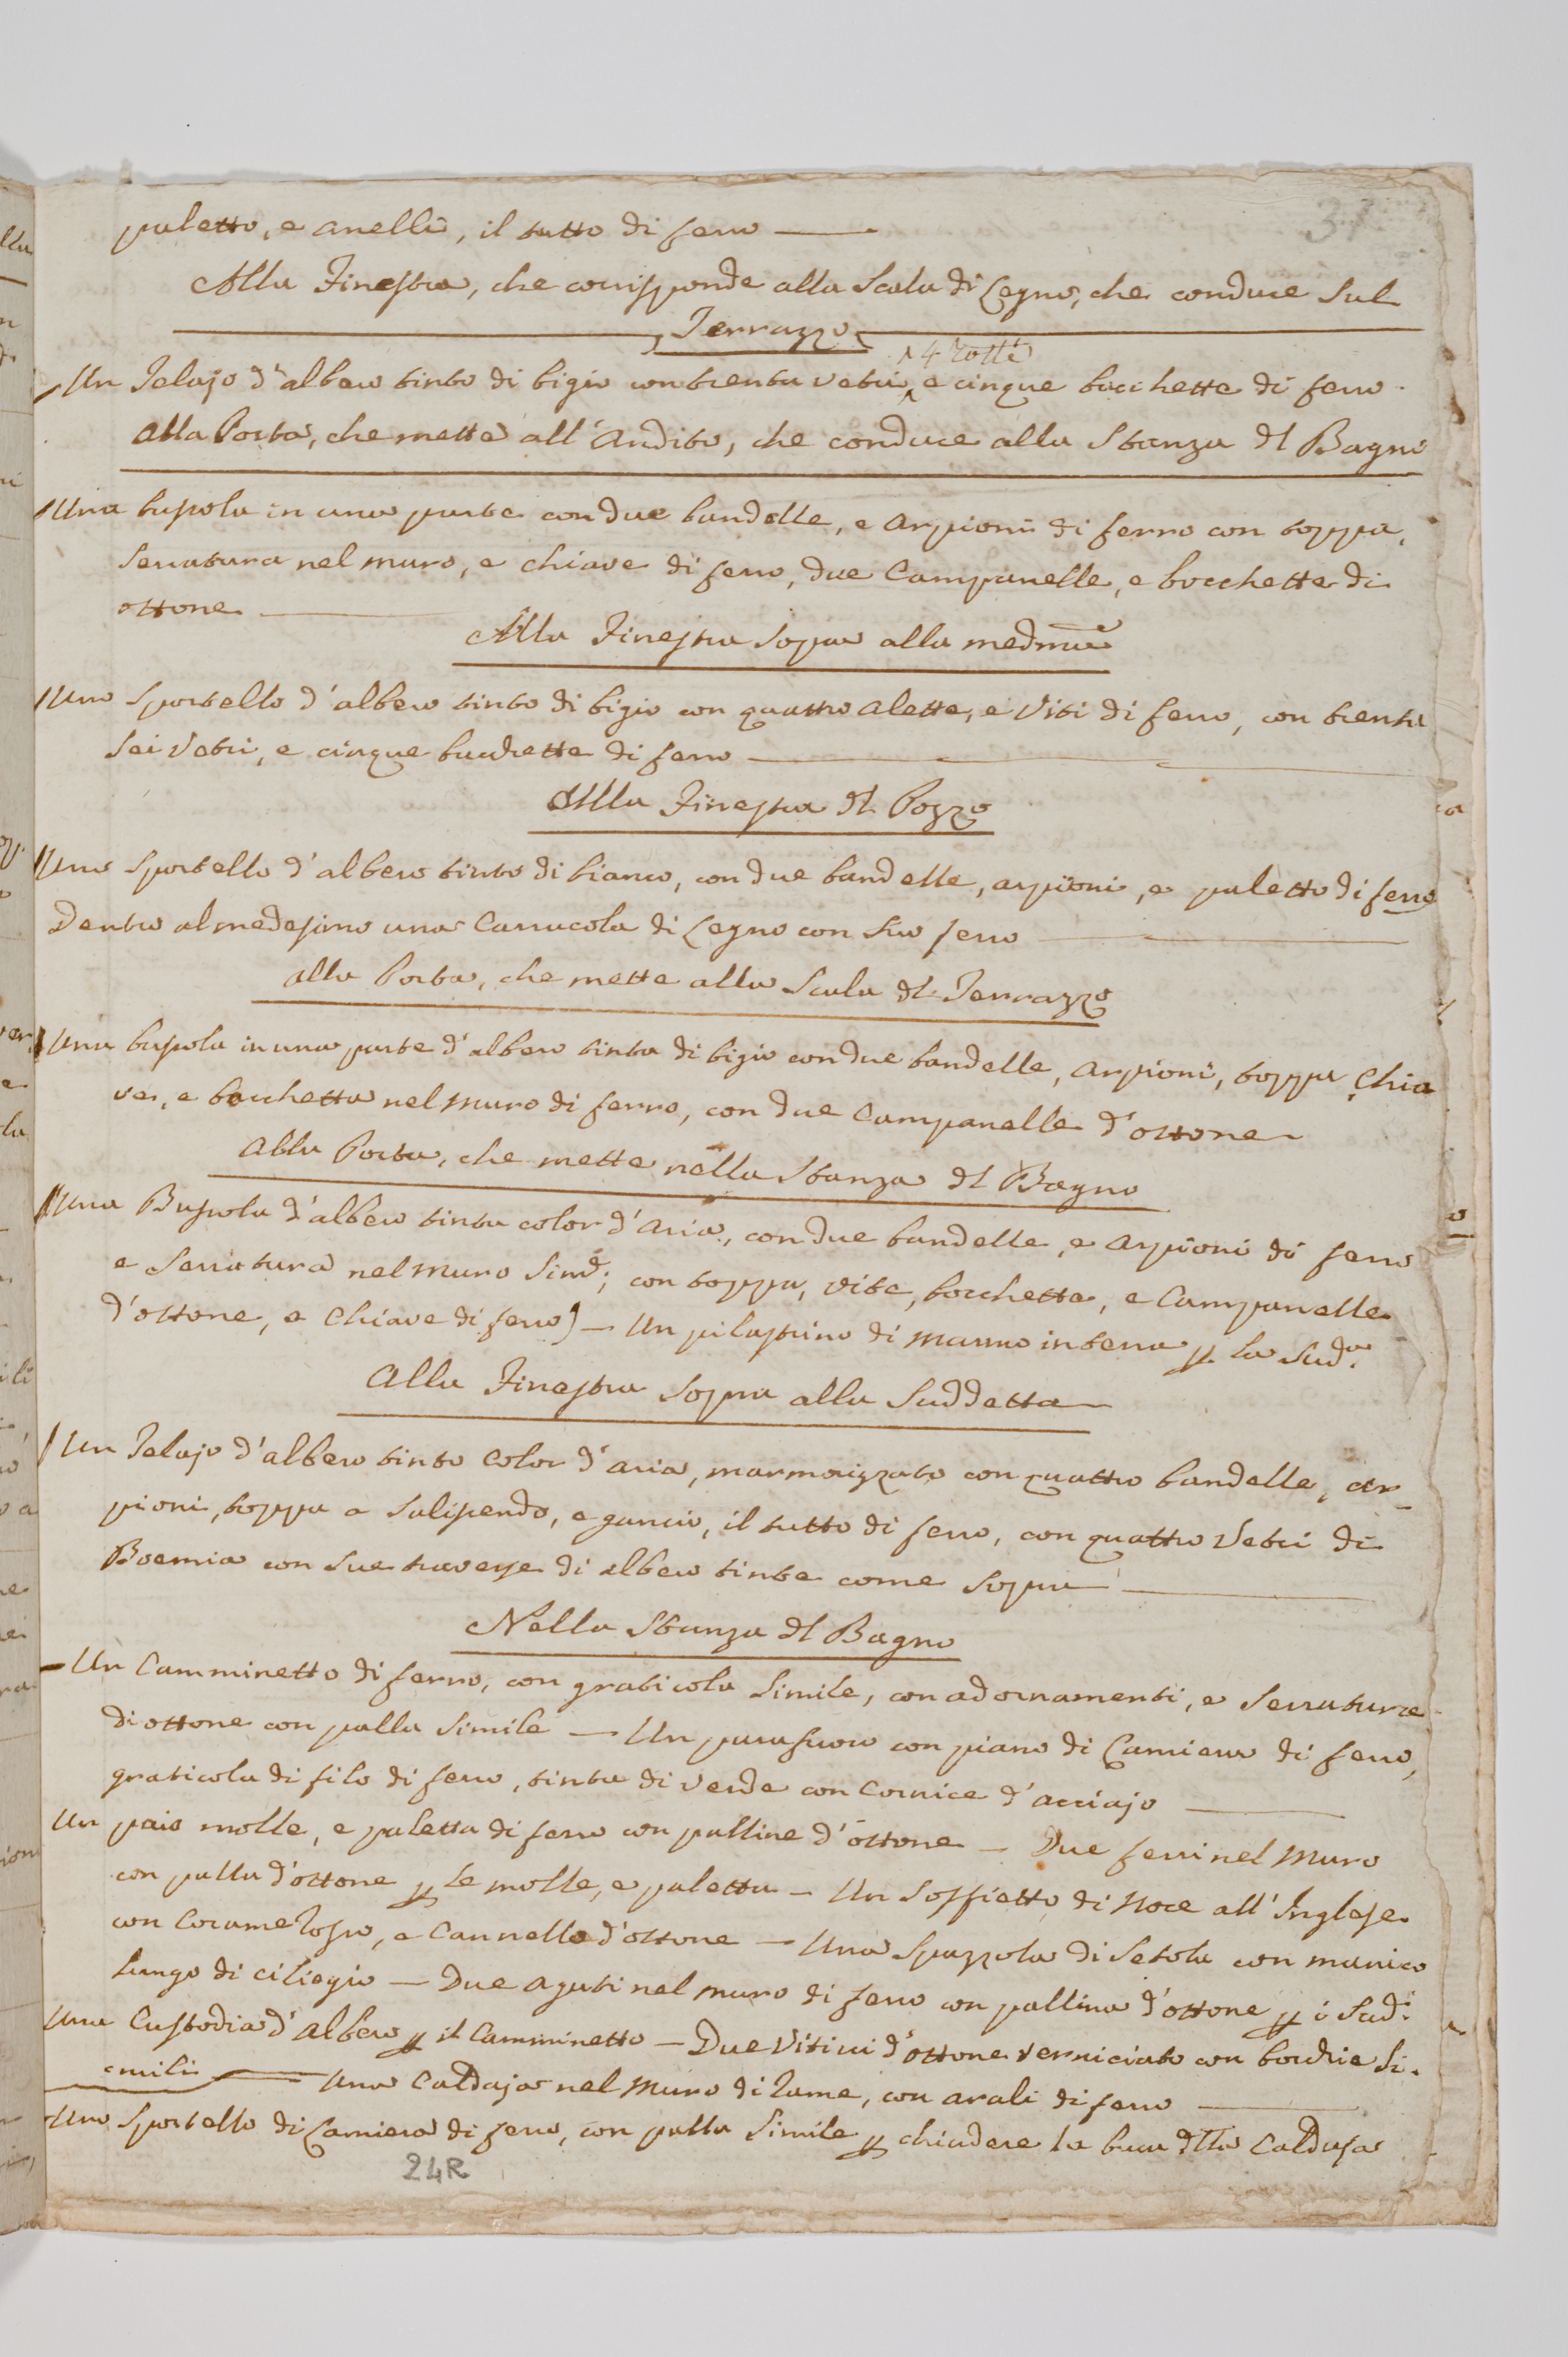 37
paletto, e anelli, il tutto di ferro —
Alla Finestra, che corrisponde alla Scala di Legno, che conduce sul
Terrazzo
^ 4 rotti
Un Telajo d'albero tinto di bigio con trenta vetri, e cinque bocchette di ferro.
Alla Porta, che mette all'Andito, che conduce alla Stanza dl Bagno
Una bussola in una parte con due bandelle, e Arpioni di ferro con toppa,
Serratura nel muro, e chiave di ferro, due Campanelle, e bocchette di
ottone —
Alla Finestra Sopra alla medma
Uno Sportello d'albero tinto di bigio con quattro alette, e Viti di ferro, con trenta
sei Vetri, e cinque bacchette di ferro —
Alla Finestra dl Pozzo
Uno Sportello d'albero tinto di bianco, con due bandelle, arpioni, e paletto di ferro
Dentro al medesimo una Carrucola di Legno con suo ferro —
Alla Porta, che mette alla Scala dl Terrazzo
Una bussola in una parte d'albero tinta di bigio con due bandelle, Arpioni, toppa, Chia
ve, e bocchetta nel muro di ferro, con due Campanelle d'ottone
Alla Porta, che mette nella Stanza dl Bagno
Una Bussola d'albero tinta color d'Aria, con due bandelle, e Arpioni di ferro
e Serratura nel muro Sime; con toppa, vite, bocchette, e Campanelle
d'ottone, e Chiave di ferro) — Un pilastrino di marmo in terra p la Suda.
Alla Finestra Sopra alla Suddetta
Un Telajo d'albero tinto Color d'aria, marmorizzato con quattro bandelle, ar-
pioni, toppa a Saliscendo, e gancio, il tutto di ferro, con quattro Vetri di
Boemia con sue traverse di albero tinte come Sopra —
Nella Stanza dl Bagno
Un Camminetto di ferro, con graticola Simile, con adornamenti, e Serrature
di ottone con palla Simile — Un parafuoco con piano di Lamiera di ferro,
graticola di filo di ferro, tinta di verde con Cornice d'acciajo —
Un paio molle, e paletta di ferro con palline d'ottone — Due ferri nel Muro
con palla d'ottone p le molle, e paletta — Un Soffietto di Noce all'Inglese
con Corame rosso, e Cannello d'ottone — Una Spazzola di Setola con manico
lungo di ciliegio — Due aguti nel muro di ferro con pallina d'ottone p i Sudi
Una Custodia d'Albero p il Camminetto — Due Viticci d'ottone verniciato con bocchie Si.
:mili — Una Caldaja nel Muro di rame, con arali di ferro —
Uno Sportello di Lamiera di ferro, con palla Simile p chiudere la buca dlla Caldaja
24R